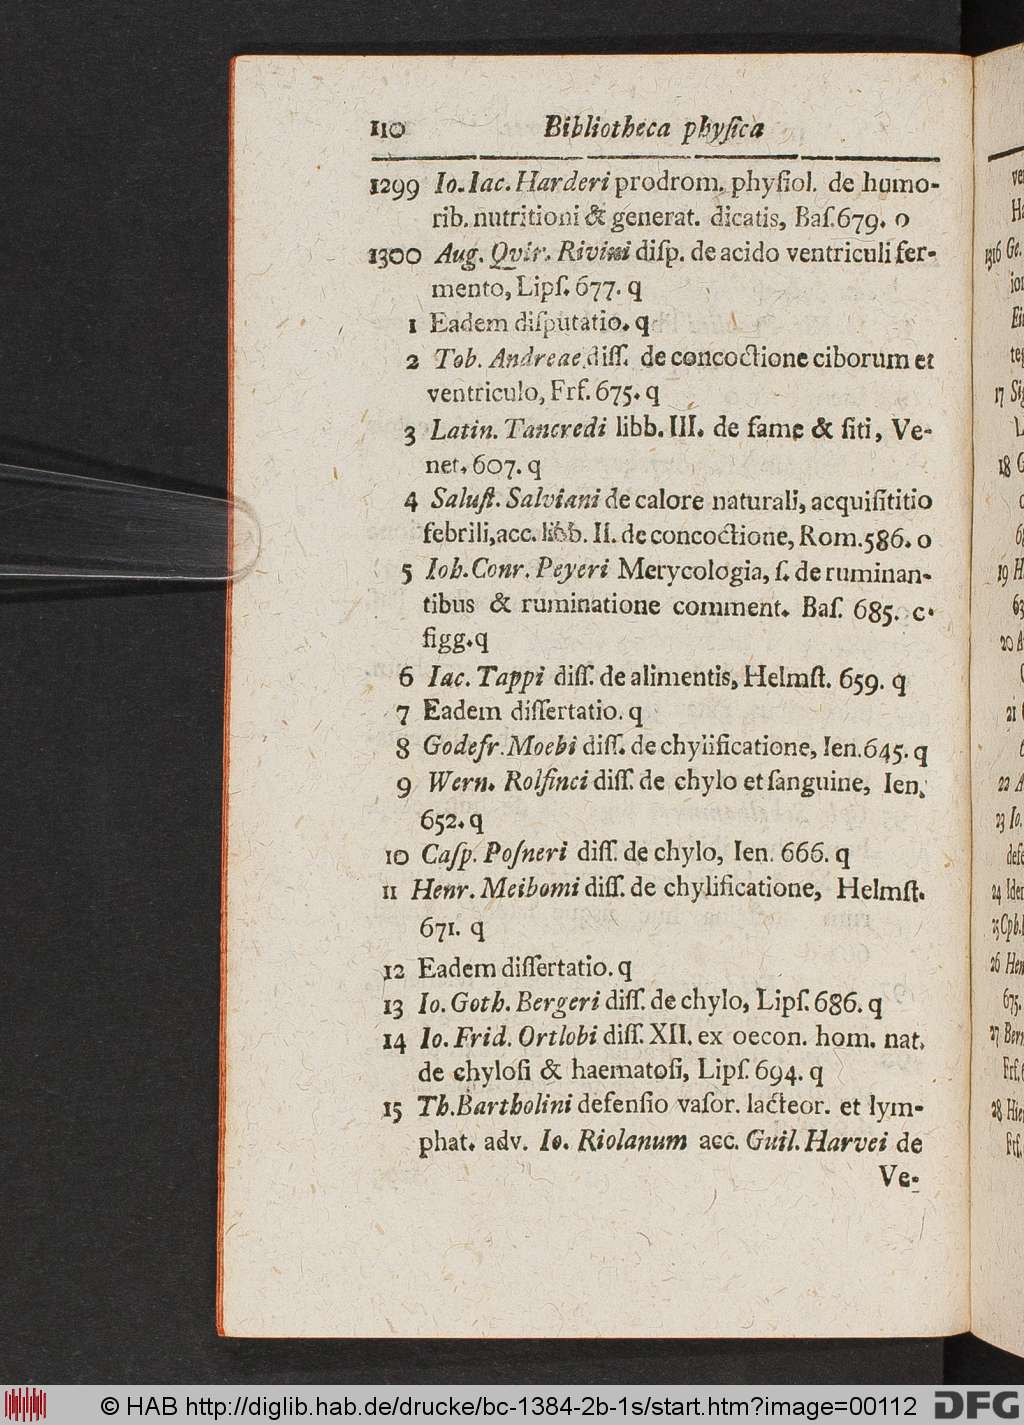 110 Bibliotheca phyſica
1299 Io. Iac. Harderi prodrom. phyſiol. de humo-
rib. nutritioni & generat. dicatis, Baſ. 679. o
1300 Aug. Qvir. Rivini diſp. de acido ventriculi fer-
mento, Lipſ. 677. q
1 Eadem diſputatio. q
2 Tob. Andreae diſſ. de concoctione ciborum et
ventriculo, Frf. 675. q
3 Latin. Tancredi libb. III. de fame & ſiti, Ve-
net. 607. q
4 Saluſt. Salviani de calore naturali, acquiſititio
febrili, acc. libb. II. de concoctione, Rom. 586. o
5 Ioh. Conr. Peyeri Merycologia, ſ. de ruminan-
tibus & ruminatione comment. Baſ. 685. c.
figg. q
6 Iac. Tappi diſſ. de alimentis, Helmſt. 659. q
7 Eadem diſſertatio. q
8 Godefr. Moebi diſſ. de chylificatione, Ien. 645. q
9 Wern. Rolfinci diſſ. de chylo et ſanguine, Ien.
652. q
10 Caſp. Poſneri diſſ. de chylo, Ien. 666. q
11 Henr. Meibomi diſſ. de chylificatione, Helmſt.
671. q
12 Eadem diſſertatio. q
13 Io. Goth. Bergeri diſſ. de chylo, Lipſ. 686. q
14 Io. Frid. Ortlobi diſſ. XII. ex oecon. hom. nat.
de chyloſi & haematoſi, Lipſ. 694. q
15 Th. Bartholini defenſio vaſor. lacteor. et lym-
phat. adv. Io. Riolanum acc. Guil. Harvei de
Ve-
1316 Ge.
17
18
19
20
21
22
23 Io.
24
25
26
675.
27
28
© HAB http://diglib.hab.de/drucke/bc-1384-2b-1s/start.htm?image=00112
DFG